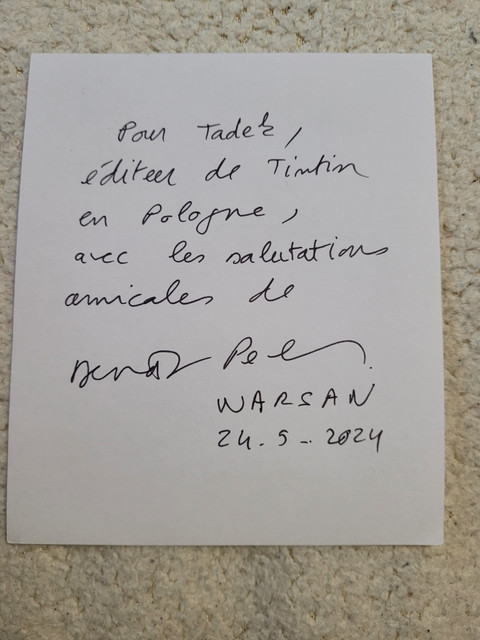 Pour Tadek,
éditeur de Tintin
en Pologne,
avec les salutations
amicales de
WARSAN
24.5-.2024